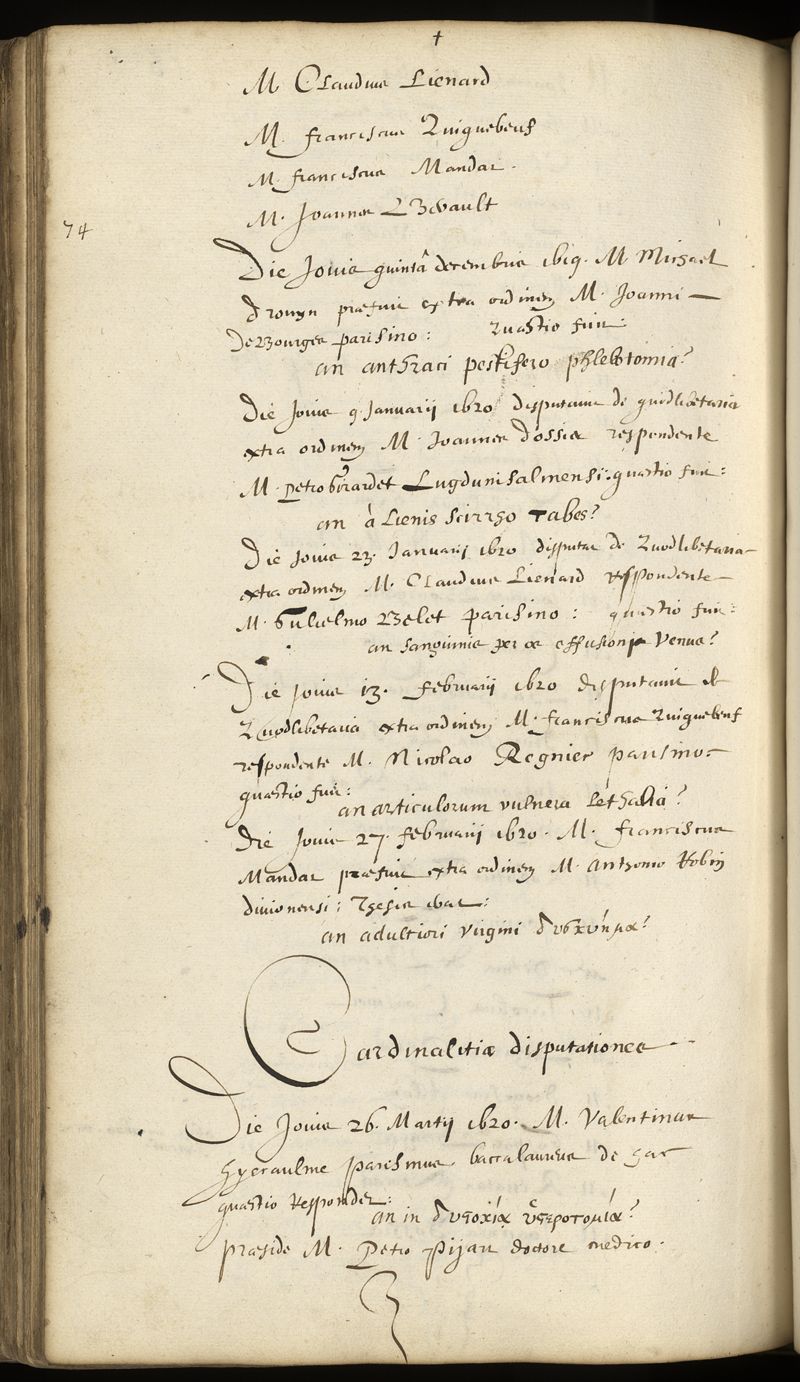 †
M. Claudius Lienard
M. franciscus Quiquebeuf
M. franciscus Mandar.
M. Joannes
74
Die Jouis quintâ decembris 1619. M. Michael
drouyn præfuit extra ordinem M. Joanni —
De Bourges parisino: Quæstio fuit:
an anthraci pestifero phlebotomia?
Die Jouis 9 Januarij 1620 disputauit de quodlibetariis
extra ordinem M. Joannes dossier respondente
M. Petro Girardet Lugdunisalmensi: quæstio fuit:
an à Lienis scirrho Tabes?
Die Jouis 23. Januarij 1620 disputat de Quodlibetariis
extra ordinem M. Claudius Lienard respondente
M. Gulielmo Belet parisino: quæstio fuit:
an sanguinis per os effusioni Venus?
Die Jouis 13. februarij 1620 disputauit de
Quodlibetariis extra ordinem M. franciscus Quiquebeuf
respondente M. Nicolao Regnier parisino
quæstio fuit:
an articulorum vulnera Lethalia?
Die Jouis 27. februarij 1620. M. franciscus
Mandar præfuit extra ordinem M. Anthonio Robin
diuionensi: Thesis erat:
an adultiori virgini
Cardinalitiæ disputationes
Die Jouis 26. Martij 1620. M. Valentinus
hyeraulme parisinus baccalaureus de hac
quæstio respondet:
an in δυστοχίᾳ ὑστεροτομία?
præside M. Petro Pijart doctore medico.